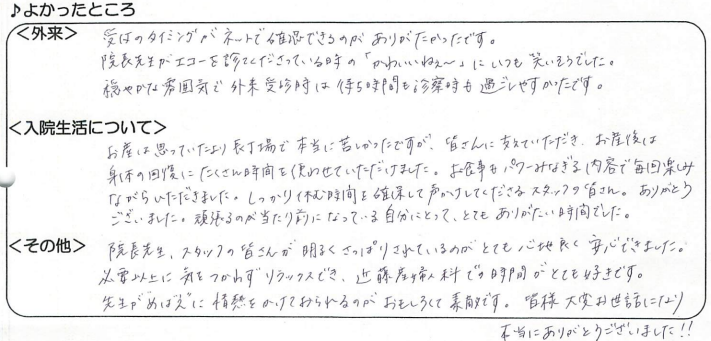 ♪よかったところ
<外来> 受付のタイミングがネットで確認できるのがありがたかったです。
院長先生がエコーを診てくださっている時の「かわいいねぇ〜」にいつも笑いそうでした。
穏やかな雰囲気で外来受診時は待ち時間も診察時も過ごしやすかったです。
<入院生活について>
お産は思っていたより長丁場で本当に苦しかったですが、皆さんに支えていただき、お産後は
身体の回復にたくさん時間を使わせていただけました。お食事もパワーみなぎる内容で毎回楽しみ
ながらいただきました。しっかり休む時間を確保して声かけしてくださるスタッフの皆さん。ありがとう
ございました。頑張るのが当たり前になっている自分にとって、とてもありがたい時間でした。
<その他> 院長先生、スタッフの皆さんが明るくさっぱりされているのがとても心地良く安心できました。
必要以上に気をつかわずリラックスでき、近藤産婦人科での時間がとても好きです。
先生がめばえに情熱をかけておられるのがおもしろくて素敵です。皆様大変お世話になり
本当にありがとうございました!!